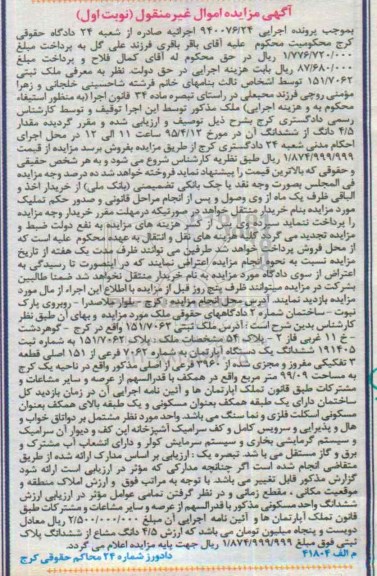 آگهی مزایده اموال غیر منقول (نوبت اول)
بموجب پرونده اجرایی ۹۴۰۰۷۶/۲۴ اجرائیه صادره از شعبه ۲۴ دادگاه حقوقی
کرج محکومیت محکوم علیه آقای باقر باقری فرزند علی گل به پرداخت مبلغ
۱/۷۷۶/۷۲۰/۰۰۰ ریال در حق محکوم له آقای کمال فلاح و پرداخت مبلغ
۸۷/۶۸۰/۰۰۰ ریال بابت هزینه اجرایی در حق دولت. نظر به معرفی ملک ثبتی
۱۵۱/۷۰۶۲ توسط اشخاص ثالث بنامهای خانم فرشته شاحسینی خلجانی و زهرا
مؤمنی روچی فرزند محبعلی در راستای تبصره ماده ۳۴ قانون اجرا (به منظور استیفاء
محکوم به و هزینه اجرایی) ملک مذکور توسط این اجرا توقیف و توسط کارشناس
رسمی دادگستری کرج بشرح ذیل توصیف و ارزیابی شده و مقرر گردیده مقدار
۴/۵ دانگ از ششدانگ آن در مورخ ۹۵/۴/۱۲ ساعت ۱۱ الی ۱۲ در محل اجرای
احکام مدنی شعبه ۲۴ دادگستری کرج از طریق مزایده بفروش برسد مزایده از قیمت
۱/۸۷۴/۹۹۹/۹۹۹ ریال طبق نظریه کارشناس شروع می شود و به هر شخص حقیقی
و حقوقی که بالاترین قیمت را پیشنهاد نماید فروخته خواهد شد ده درصد وجه مزایده
فی المجلس بصورت وجه نقد یا چک بانکی تضمینی (بانک ملی) از خریدار اخذ و
الباقی ظرف یک ماه از وی وصول و پس از انجام مراحل قانونی و صدور حکم تملیک
مورد مزایده بنام خریدار منتقل خواهد در صورتیکه در مهلت مقرر خریدار وجه مزایده
را پرداخت ننماید سپرده وی پس از کسر هزینه های مزایده به نفع دولت ضبط و
مزایده تجدید می گردد کلیه هزینه های نقل و انتقال به عهده محکوم علیه است که
از محل فروش پرداخت خواهد شد طرفین می توانند ظرف مدت یک هفته از تاریخ
مزایده نسبت به نحوه انجام مزایده اعتراض نمایند که در اینصورت تا رسیدگی به
اعتراض از سوی دادگاه مورد مزایده به نام خریدار منتقل نخواهد شد ضمنا طالبین
شرکت در مزایده میتوانند ظرف پنج روز قبل از مزایده با اطلاع این اجراء از مال مورد
مزایده بازدید نمایند. آدرس محل انجام مزایده کرج - بلوار ملاصدرا - روبروی پارک
نبوت - ساختمان شماره ۲ دادگاههای حقوقی ملک مورد مزایده و بهای آن طبق نظر
کارشناس بدین شرح است: آدرس ملک ثبتی ۱۵۱/۷۰۶۲ واقع در کرج - گوهردشت
- خ ۱۱ غربی فاز ۲ - پلاک ۵۴ مشخصات ملک: پلاک ۱۵۱/۷۰۶۲ به شماره ثبت
۱۹۱۴۰۵ ششدانگ یک دستگاه آپارتمان به شماره ۷۰۶۲ فرعی از ۱۵۱ اصلی قطعه
۳ تفکیکی مفروز و مجزی شده از ۳۹۶۰ فرعی از اصلی مذکور واقع در ناحیه یک کرج
به مساحت ۹۹/۰۹ متر مربع واقع در همکف با قدرالسهم از عرصه و سایر مشاعات و
مشترکات طبق قانون تملک آپارتمان ها و آئین نامه اجرایی آن در زمان بازدید کل
ساختمان دارای یک طبقه همکف بعنوان مسکونی و یک طبقه بالای همکف بعنوان
مسکونی اسکلت فلزی و نما سنگ می باشد. واحد مورد نظر مشتمل بر دواتاق خواب و
هال و پذیرایی و سرویس کامل و کف سرامیک آشپزخانه اپن کف و دیوار آن سرامیک
و سیستم گرمایشی بخاری و سیستم سرمایش کولر و دارای انشعاب آب مشترک و
برق و گاز مستقل می باشد. تبصره یک: ارزیابی بر اساس مدارک ارائه شده از طریق
متقاضی انجام شده است اگر چنانچه مدارکی که مؤثر در ارزیابی است ارائه شود
گزارش مذکور قابل تغییر می باشد. با توجه به مراتب فوق و ارزش املاک منطقه و
موقعیت مکانی، مقطع زمانی و در نظر گرفتن تمامی عوامل مؤثر در ارزیابی ارزش
ششدانگ واحد مسکونی مذکور با قدرالسهم از عرصه و سایر مشاعات و مشترکات طبق
قانون تملک آپارتمان ها و آئین نامه اجرایی آن مبلغ ۲/۵۰۰/۰۰۰/۰۰۰ ریال معادل
دویست و پنجاه میلیون تومان می باشد که ارزش ۴/۵ دانگ مشاع از ششدانگ پلاک
ثبتی فوق مبلغ ۱/۸۷۴/۹۹۹/۹۹۹ ریال جهت پایه مزایده اعلام می گردد.
م الف ۴۱۸۰۴ دادورز شماره ۲۴ محاکم حقوقی کرج